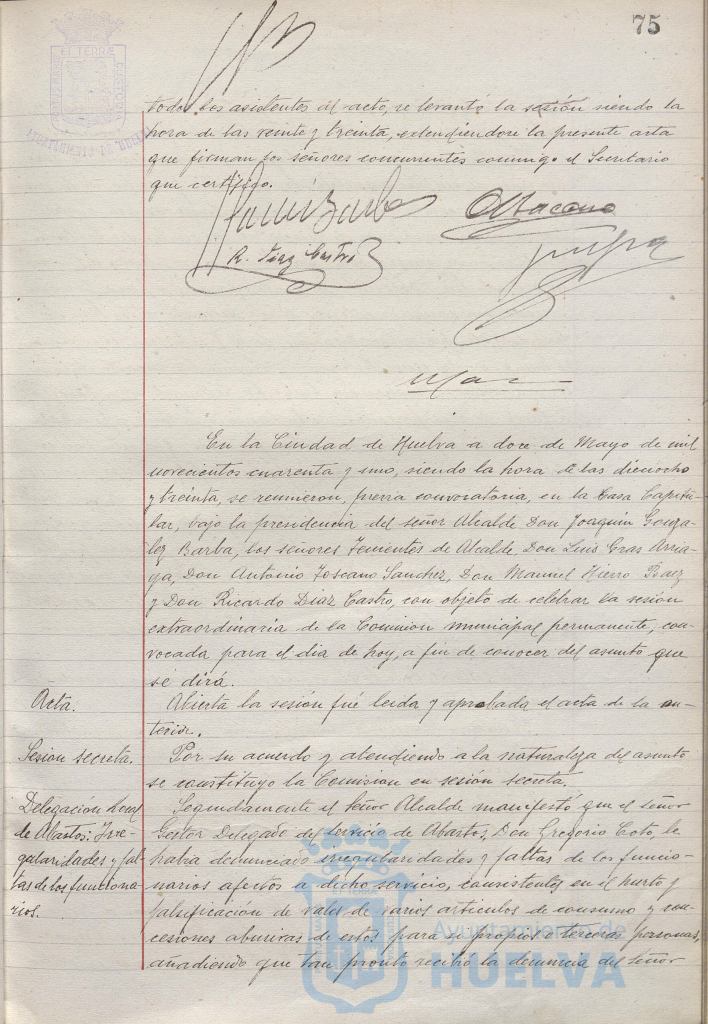 75
todos los asistentes al acto, se levantó la sesión siendo la
hora de las veinte y treinta, extendiendose la presente acta
que firman los señores concurrentes conmigo el Secretario
que certifico.
R. Diaz Castro
En la Ciudad de Huelva a doce de Mayo de mil
novecientos cuarenta y uno, siendo la hora de las dieciocho
y treinta, se reunieron, previa convocatoria, en la Casa Capitu-
lar, bajo la presidencia del señor Alcalde Don Joaquin Gonza-
lez Barba, los señores Tenientes de Alcalde, Don Luis Gras Arria-
ga, Don Antonio Toscano Sanchez, Don Manuel Hierro Baez
y Don Ricardo Diaz Castro, con objeto de celebrar la sesión
extraordinaria de la Comision municipal permanente, con-
vocada para el dia de hoy, a fin de conocer del asunto que
se dirá.
Acta.
Abierta la sesión fué leida y aprobada el acta de la an-
terior.
Sesion secreta.
Por su acuerdo y atendiendo a la naturaleza del asunto
se constituyo la Comision en sesión secreta.
Delegación Local
de Abastos: Irre-
gularidades y fal-
tas de los funciona-
rios.
Seguidamente el Señor Alcalde manifestó que el señor
Gestor Delegado del servicio de Abastos, Don Gregorio Coto, le
habia denunciado irregularidades y faltas de los funcio-
narios afectos a dicho servicio, consistentes en el hurto y
falsificación de vales de varios articulos de consumo y con-
cesiones abusivas de estos para si propios o terceras personas,
añadiendo que tan pronto recibió la denuncia del señor
Ayuntamiento de
HUELVA